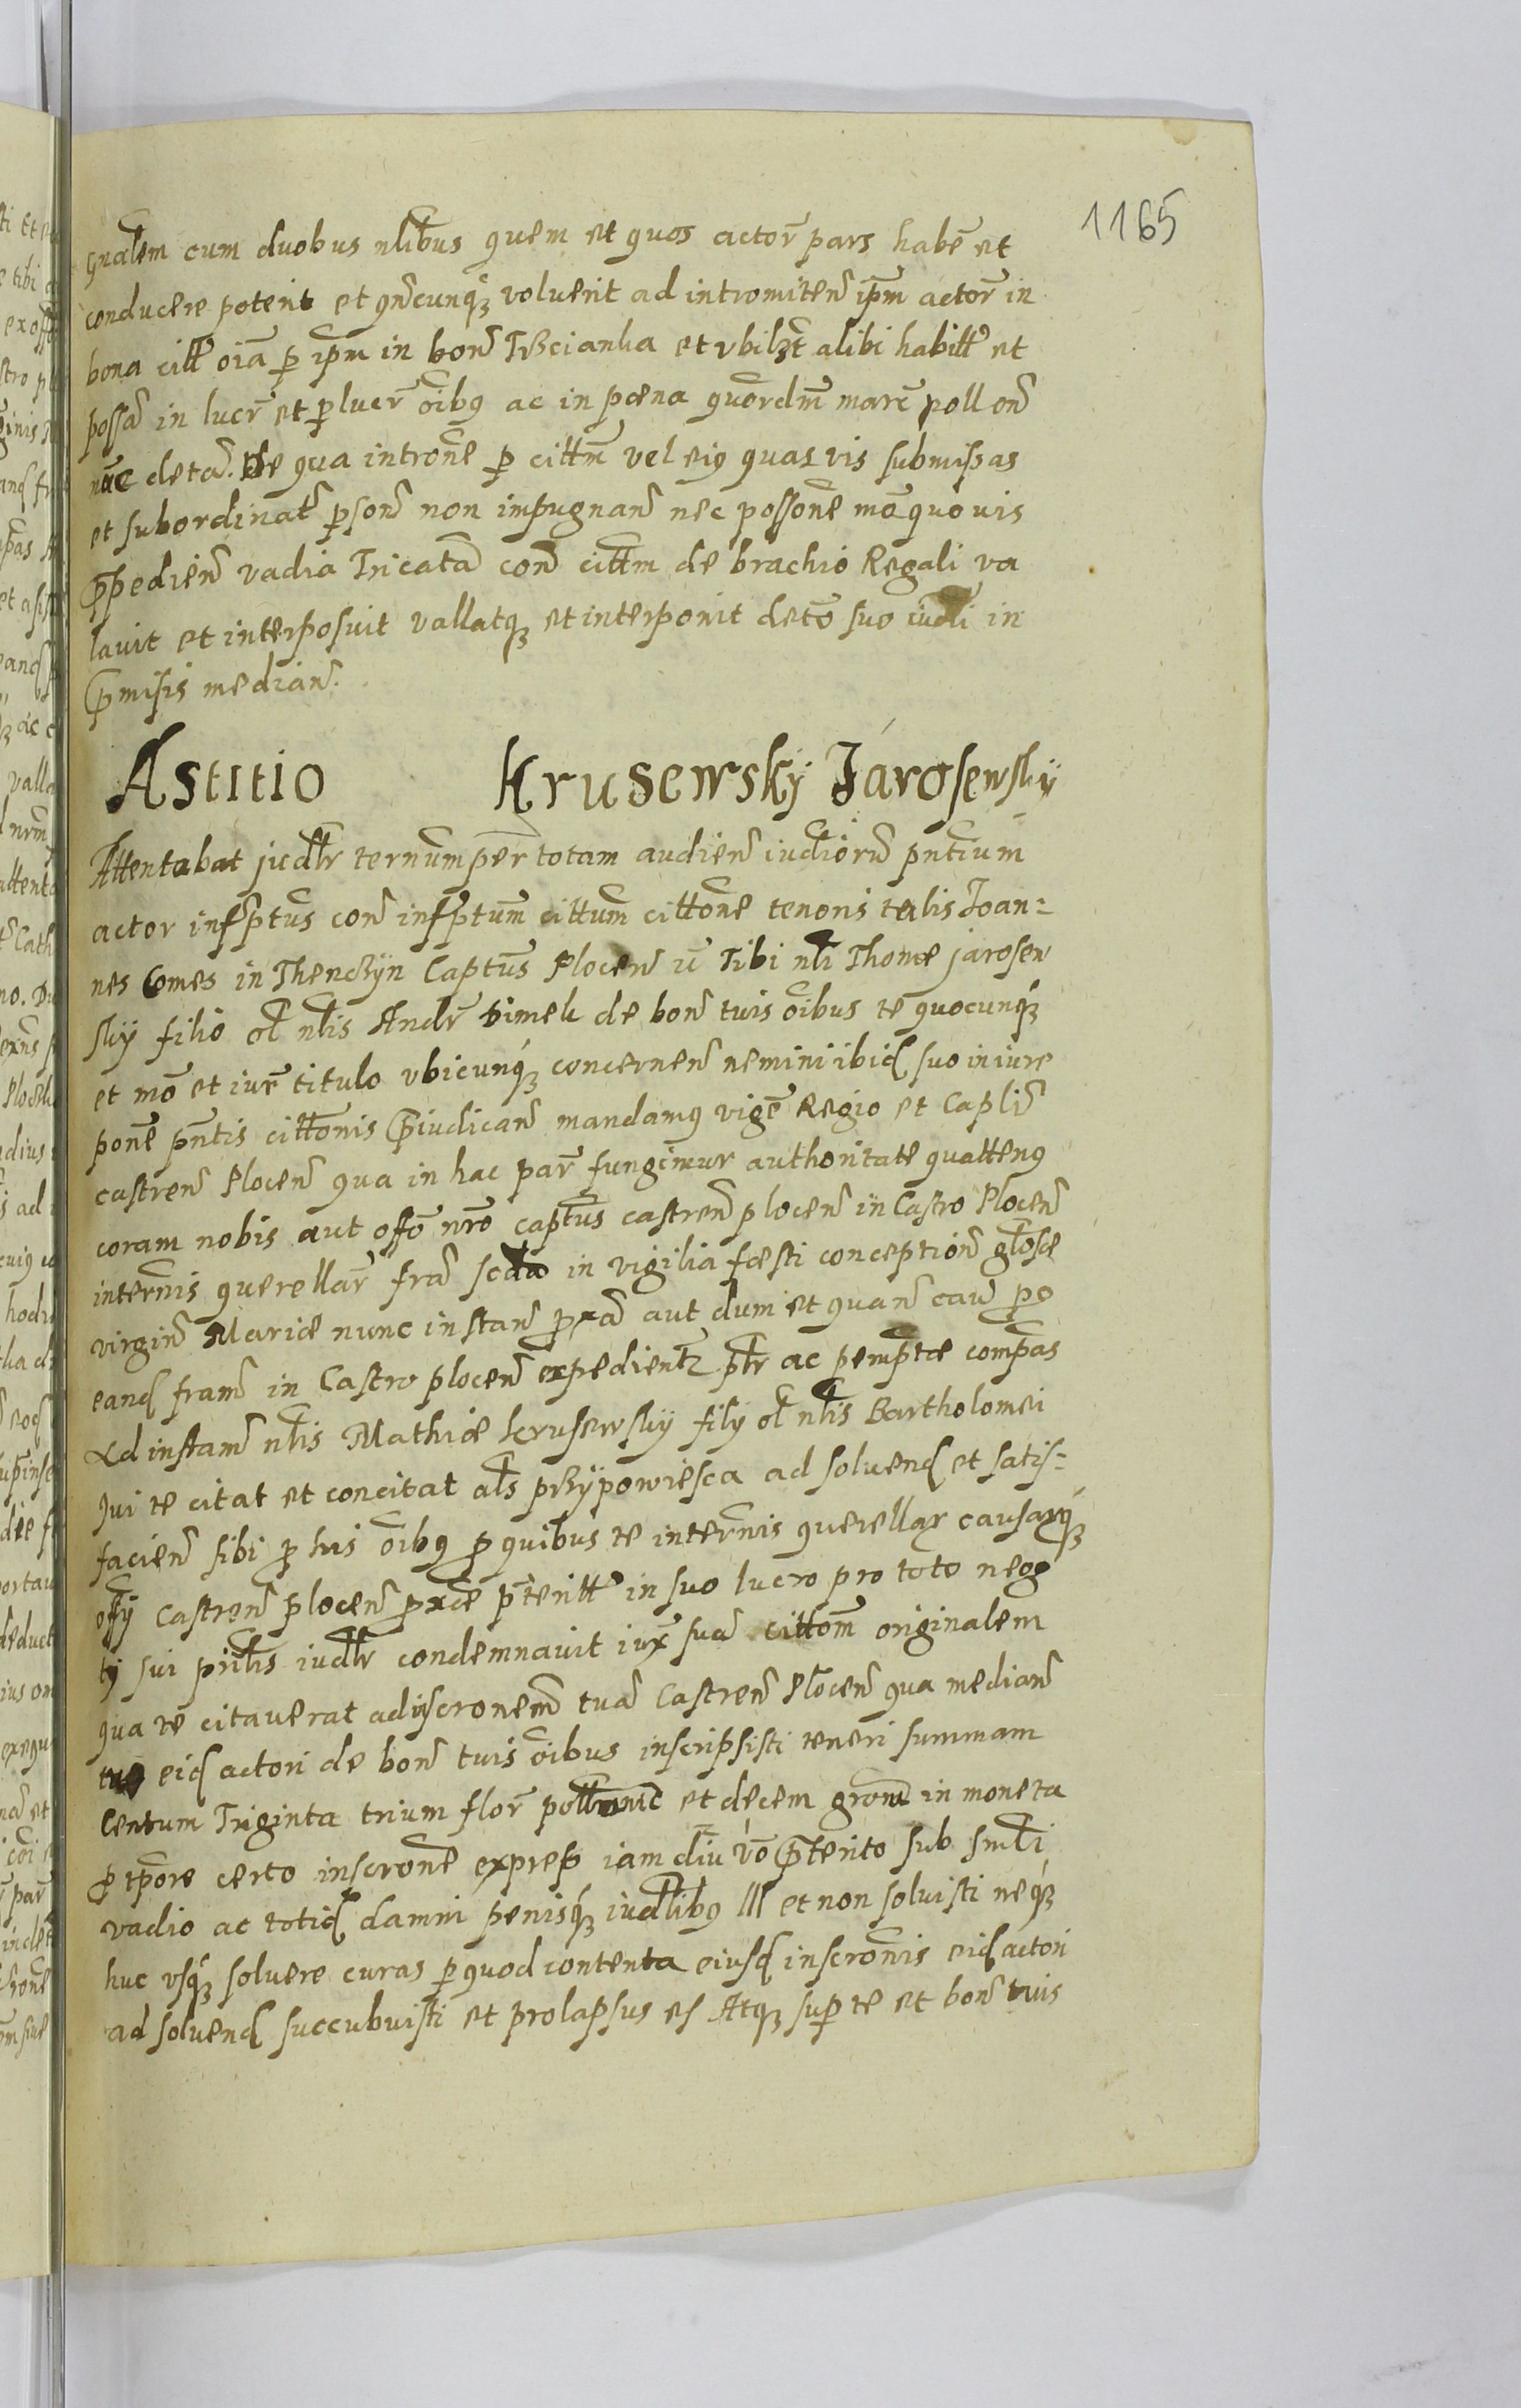 1165
gnalem cum duobus nlibus quem et quos actor pars habe et
conducere poterit et qncunqz voluerit ad intromitten ipm actor in
bona citt oia p ipm in bon Trzcianka et vbilzt alibi habitt et
possa in lucr et p lucr oibus ac in pœna quordm marc poll on
nuc deta. De qua introne p cittm vel eius quasvis submissas
et subordinat pson non impugnan nec possone mo quovis
ppedien vadia Tricata con cittm de brachio Regali va
lavit et interposuit vallatqz et interponit deto suo iudli in
pmisis median.
Astitio Krusewsky Jarosewsky
Attentabat judlr ternum per totam audien iudiorum pntium
actor infrptus con infrptum cittum cittone tenoris talis Joan=
nes Comes in Thenczÿn Captus Plocen Tibi nli Thomæ jarosew
sky filio ol nlis Andr Dimek de bon tuis oibus te quocunqz
et mo et iure titulo vbicunqz concernen nemini ibid suo in iure
pone pntis cittonis piudican mandamus vige Regio et Capli
castren Plocen qua in hac par fungimur authoritate quattenus
coram nobis aut offo nro captus castren plocen in Castro Plocen
internis querellar fra scda in vigilia fœsti conception glosæ
virgin Mariæ nunc instan pxa aut dum et quan cau po
eand fram in Castro plocen expedientz ptr ac pemptæ compas
Ad instam nlis Mathiæ krusewsky fily ol nlis Bartholomei
Qui te citat et concitat als przypowiesca ad solvend et satis=
facien sibi p his oibus p quibus te internis querellar causarqz
offy Castren plocen pxde pteritt in suo lucro pro toto neg
ty sui prilis iudlr condemnavit iux sua cittom originalem
qua te citaverat ad inscronem tua Castren Plocen qua median
eid actori de bon tuis oibus inscripsisti teneri summam
Centum Triginta trium flor poll et decem gron in moneta
p tpore certo inscrone express iam diu vo pterito sub smli
vadio ac totid damni penisqz iudlibus lll et non solvisti neqz
huc vsqz soluere curas p quod contenta eiusd inscronis eid actori
ad solvend succubuisti et prolapsus es Atqz sup te et bon tuis